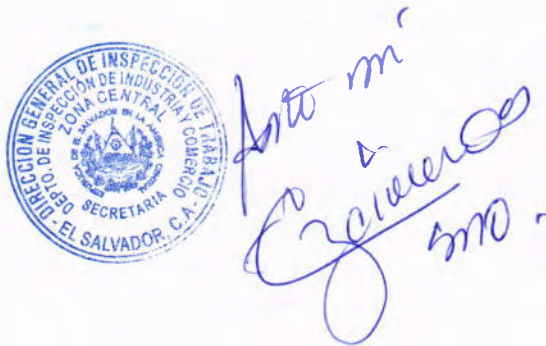 DIRECCION GENERAL DE INSPECCION DE TRABAJO
DEPTO. DE INSPECCIÓN DE INDUSTRIA Y COMERCIO
ZONA CENTRAL
REPUBLICA DE EL SALVADOR EN LA AMERICA CENTRAL
SECRETARIA
- EL SALVADOR, C.A. -
Ante mí
srio.